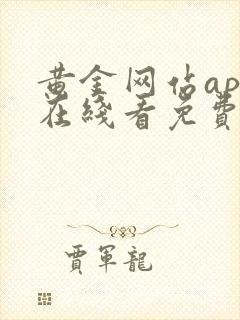 黄金网站ap
在綫看免費
賈軍龍